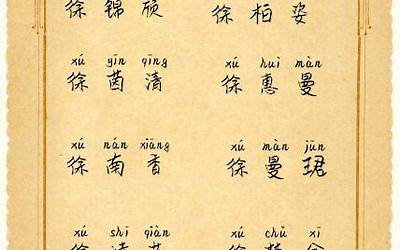 徐锦颀 徐柏姿
xú yīn qīng xú huì màn
徐茵清 徐惠曼
xú nán xiāng xú màn jūn
徐南香 徐曼珺
xú shī qiàn xú chǔ xī
徐诗茜 徐楚